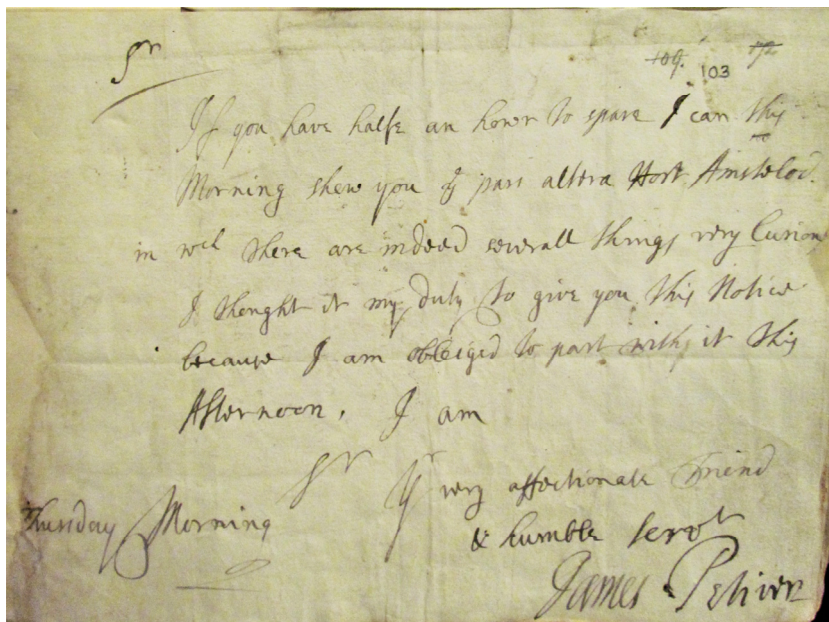 Sr
109. 103 172
If you have halfe an hower to spare I can this
Morning shew you ye pars altera Hort. Amstelod.
in wch there are indeed severall things very Curious
I thought it my duty to give you this Notice
because I am obleiged to part with it this
Afternoon. I am
Sr Yr very affectionate Friend
Thursday Morning & humble servt
James Petiver